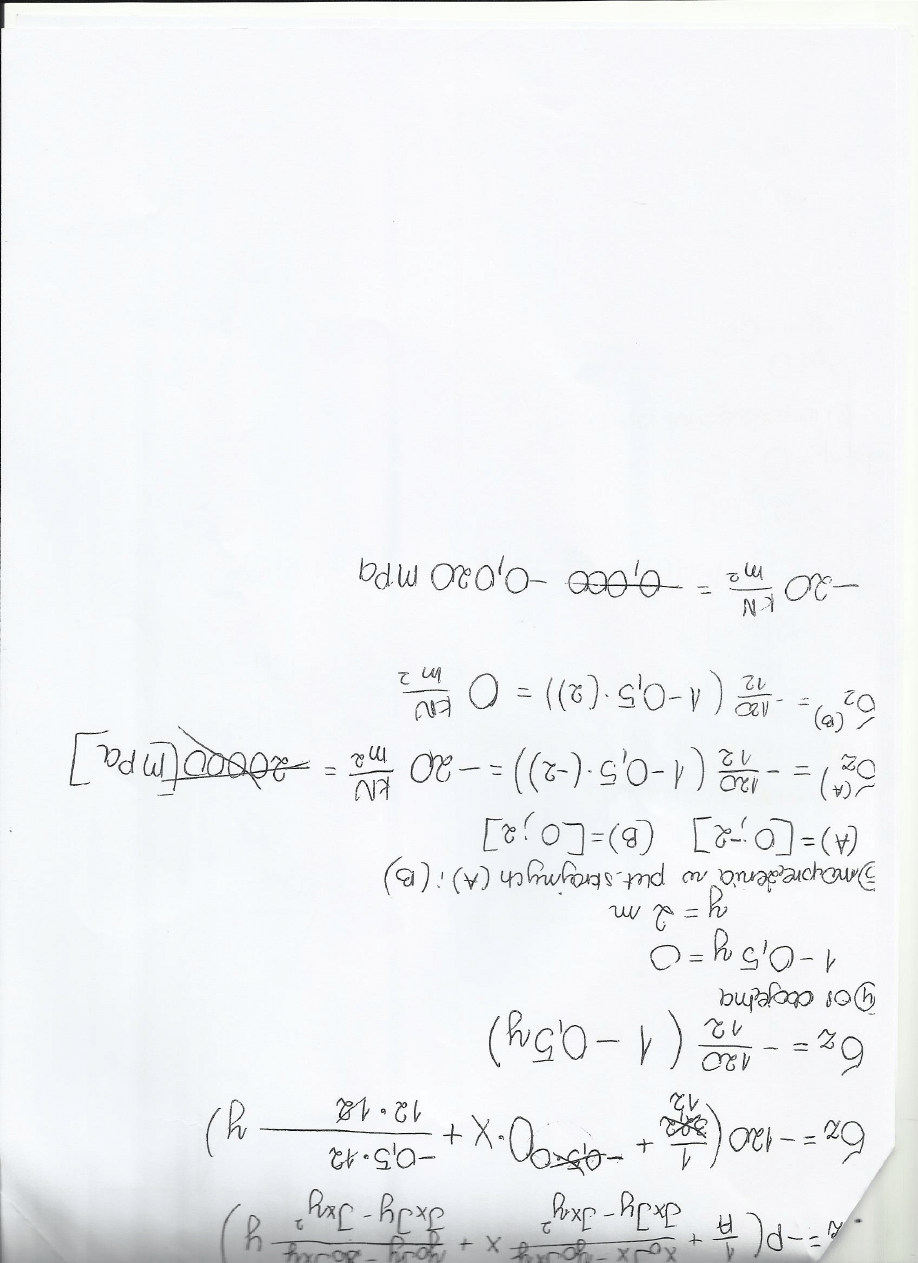 z = -P( 1/A + (x₀Jx - y₀Jxy)/(JxJy - Jxy²) x + (y₀Jy - x₀Jxy)/(JxJy - Jxy²) y)
σz = -120( 1/12 + 0·x + (-0,5·12)/(12·12) y)
σz = - 120/12 (1 - 0,5y)
4) oś obojętna
1 - 0,5y = 0
y = 2 m
5) naprężenia w pkt. skrajnych (A) i (B)
(A) = [0 ; -2] (B) = [0 ; 2]
σz(A) = - 120/12 (1 - 0,5·(-2)) = -20 kN/m² = 20000 [mPa]
σz(B) = - 120/12 (1 - 0,5·(2)) = 0 kN/m²
-20 kN/m² = 0,000 -0,020 mPa